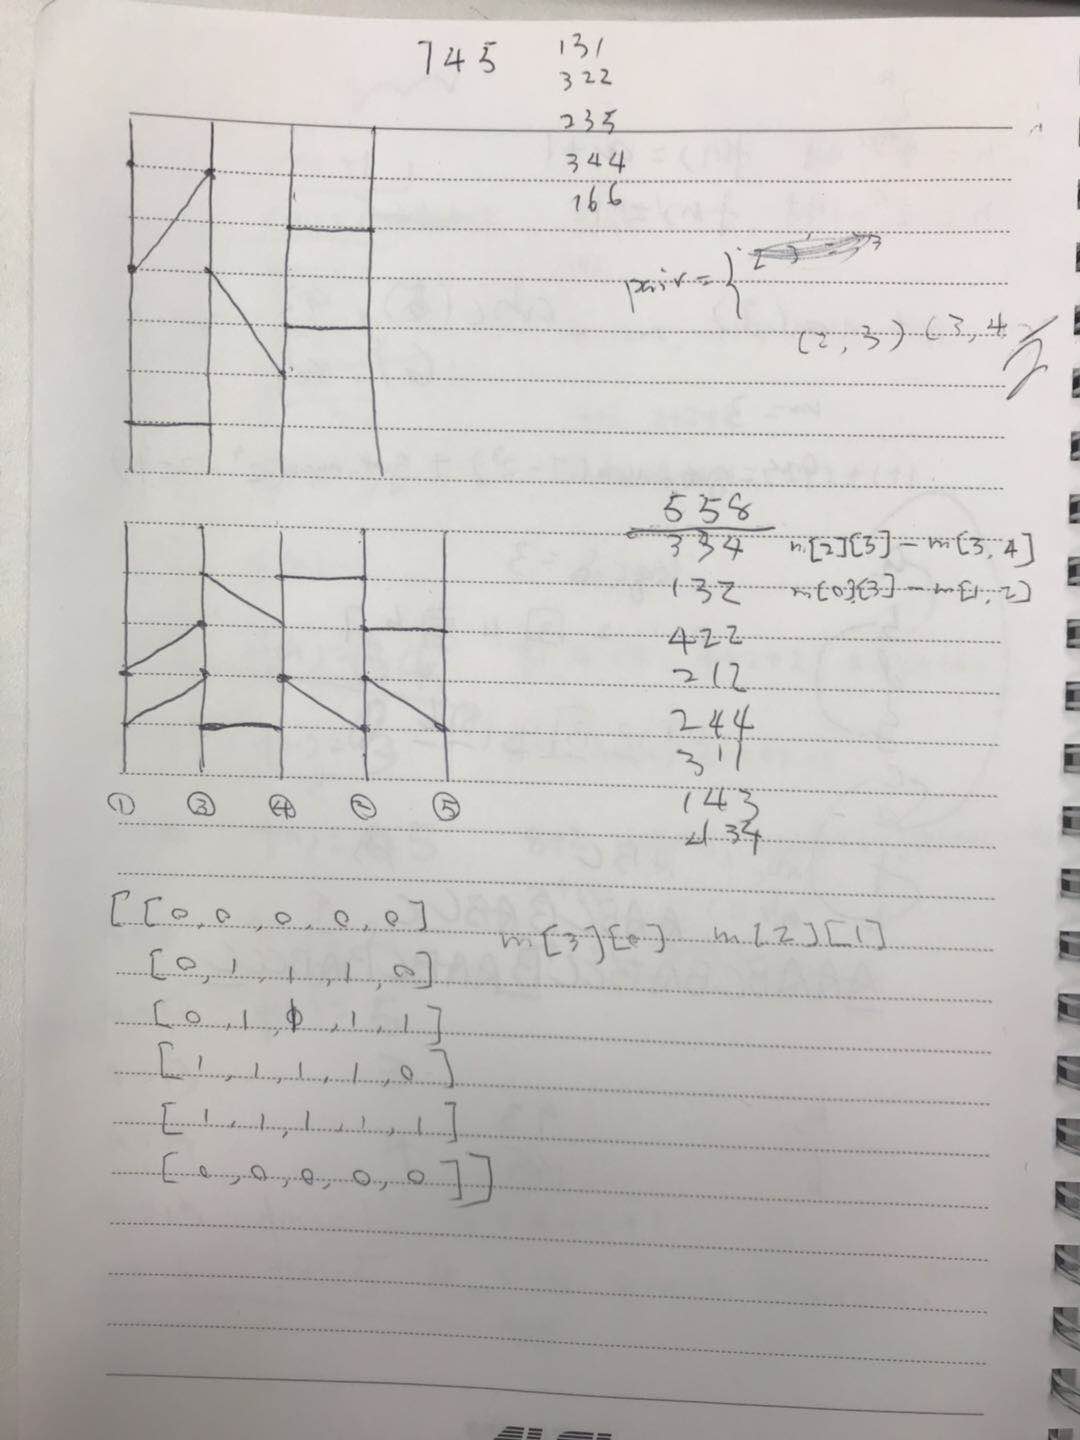 745
131
322
235
344
166
pair = {
(2, 3) (3, 4
558
334 m[2][3] - m[3, 4]
132 m[0][3] - m[1, 2]
422
212
244
311
143
434
① ③ ④ ② ⑤
[ [0, 0, 0, 0, 0]
m[3][0] m[2][1]
[0, 1, 1, 1, 0]
[0, 1, 1, 1]
[1, 1, 1, 1, 0]
[1, 1, 1, 1, 1]
[0, 0, 0, 0, 0] ]